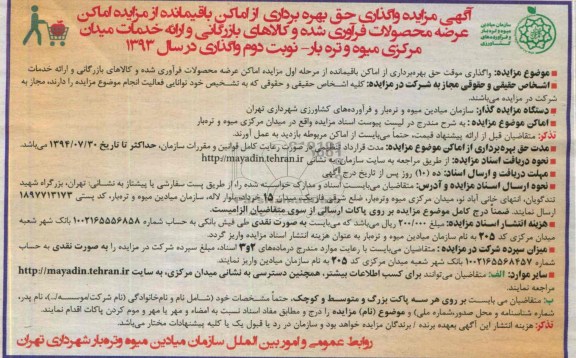 آگهی مزایده واگذاری حق بهره برداری از اماکن باقیمانده از مزایده اماکن
عرضه محصولات فرآوری شده و کالاهای بازرگانی و ارائه خدمات میدان
مرکزی میوه و تره بار – نوبت دوم واگذاری در سال ۱۳۹۳
سازمان میادین
میوه و تره بار
و فرآورده‌های
کشاورزی
موضوع مزایده: واگذاری موقت حق بهره‌برداری از اماکن باقیمانده از مرحله اول مزایده اماکن عرضه محصولات فرآوری شده و کالاهای بازرگانی و ارائه خدمات
اشخاص حقیقی و حقوقی مجاز به شرکت در مزایده: کلیه اشخاص حقیقی و حقوقی که به تشخیص خود توانایی فعالیت انجام موضوع مزایده را دارند، مجاز به
شرکت در مزایده می‌باشند.
دستگاه مزایده گذار: سازمان میادین میوه و تره‌بار و فرآورده‌های کشاورزی شهرداری تهران
اماکن موضوع مزایده: به شرح مندرج در لیست پیوست اسناد مزایده واقع در میدان مرکزی میوه و تره‌بار
تذکر: متقاضیان قبل از ارائه پیشنهاد قیمت، حتماً می‌بایست از اماکن مربوطه بازدید به عمل آورند.
مدت حق بهره‌برداری از اماکن موضوع مزایده: مدت قرارداد در صورت رعایت کامل قوانین و مقررات سازمان، حداکثر تا تاریخ ۱۳۹۴/۰۷/۳۰ می‌باشد.
نحوه دریافت اسناد مزایده: از طریق مراجعه به سایت سازمان، به نشانی http://mayadin.tehran.ir
مهلت دریافت و ارسال اسناد: ده (۱۰) روز پس از تاریخ درج آگهی
نحوه ارسال اسناد مزایده و آدرس: متقاضیان می‌بایست اسناد و مدارک خواسته شده را، از طریق پست سفارشی یا پیشتاز به نشانی: تهران، بزرگراه شهید
تندگویان، انتهای خانی آباد نو، میدان مرکزی میوه و تره‌بار، ضلع شرقی میدان، خیابان ۱۵ خرداد، بلوار لاله، سازمان میادین میوه و تره‌بار، کد پستی ۱۸۹۷۷۱۳۱۷۳
ارسال نمایند. ضمناً درج کامل موضوع مزایده بر روی پاکات ارسالی از سوی متقاضیان الزامیست.
هزینه انتشار اسناد مزایده: مبلغ ۲۰۰/۰۰۰ ریال می‌باشد که می‌بایست به صورت نقدی طی فیش بانکی به حساب شماره ۱۰۰۲۱۶۵۵۵۶۸۵۸ بانک شهر شعبه
میدان مرکزی کد ۲۰۵ به نام سازمان میادین میوه و تره‌بار به عنوان هزینه انتشار اسناد مزایده واریز گردد.
میزان سپرده شرکت در مزایده: متقاضیان می‌بایست با رعایت موارد مندرج درماده‌های ۲و۳ اسناد، مبلغ سپرده شرکت در مزایده را به صورت نقدی به حساب
شماره ۱۰۰۲۱۶۵۵۶۸۴۵۷ بانک شهر شعبه میدان مرکزی کد ۲۰۵ به نام سازمان میادین واریز نمایند.
سایر موارد: الف: متقاضیان می‌توانند برای کسب اطلاعات بیشتر، همچنین دسترسی به نشانی میدان مرکزی، به سایت http://mayadin.tehran.ir
مراجعه نمایند.
ب: متقاضیان می بایست بر روی هر سه پاکت بزرگ و متوسط و کوچک، حتماً مشخصات خود (شامل نام و نام‌خانوادگی (نام شرکت/موسسه/..)، نام پدر،
شماره شناسنامه و محل صدور،شماره ملی) و موضوع (نام) مزایده را درج و مطابق مفاد اسناد نسبت به امضاء و مهر یا مهر و موم کردن پاکات اقدام نمایند.
تذکر: هزینه انتشار این آگهی بعهده برنده / برندگان مزایده خواهد بود و سازمان در رد یا قبول یک یا کلیه پیشنهادات مختار می‌باشد.
روابط عمومی و امور بین الملل سازمان میادین میوه و تره‌بار شهرداری تهران